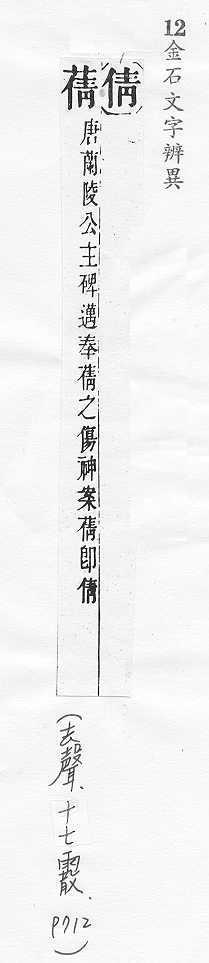 12金石文字辨異
(倩)
蒨唐蘭陵公主碑邁奉蒨之傷神案蒨即倩
(去聲、十七霰、P712)